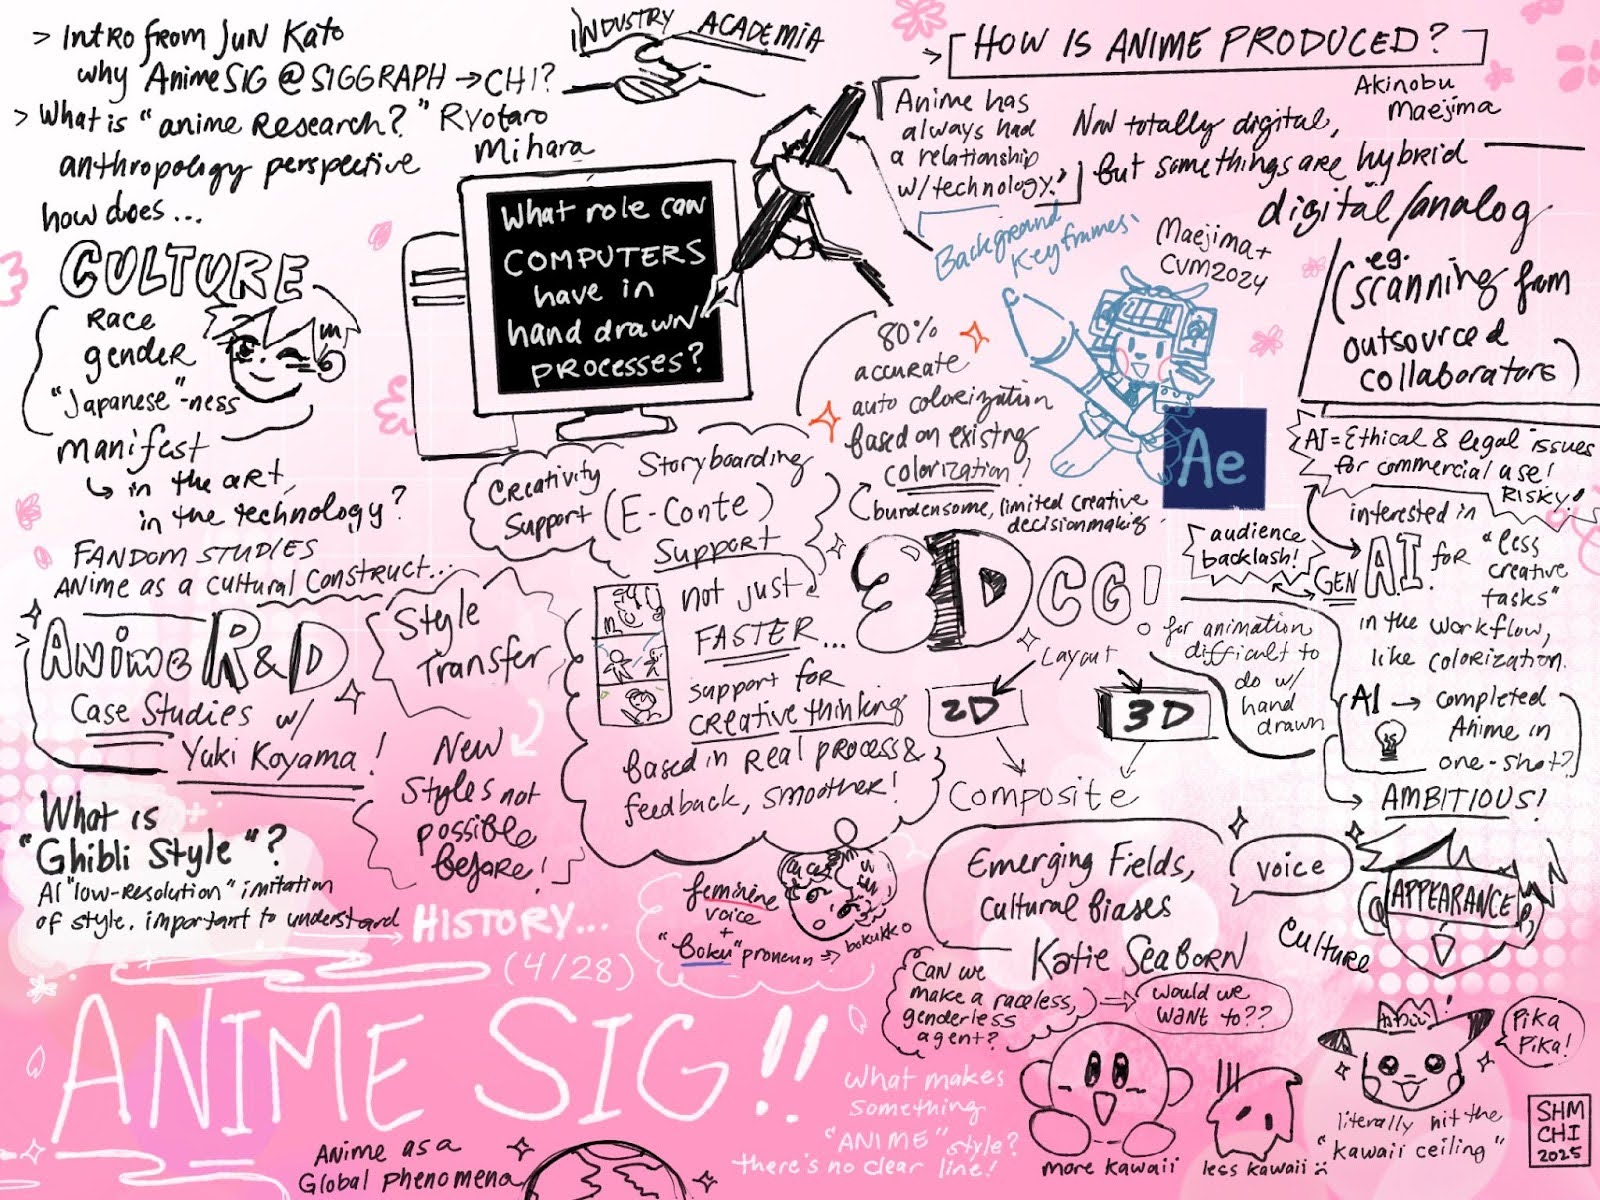 > Intro from Jun Kato
why AnimeSIG @ SIGGRAPH → CHI?
> What is "anime Research?" Ryotaro Mihara
anthropology perspective
how does...
CULTURE
Race
gender
"Japanese"-ness
manifest
↳ in the art,
in the technology?
FANDOM STUDIES
Anime as a cultural construct...
INDUSTRY ACADEMIA
What role can
COMPUTERS
have in
hand drawn
PROCESSES?
> HOW IS ANIME PRODUCED?
Akinobu
Maejima
Anime has
always had
a relationship
w/technology.
Now totally digital,
but some things are hybrid
digital/analog
(eg.
scanning from
outsourced
collaborators)
Background
Keyframes
Maejima+
CVM2024
Ae
80%
accurate
auto colorization
based on existing
colorization!
burdensome, limited creative
decisionmaking
AI = Ethical & legal issues
for commercial use!
RISKY!
audience
backlash!
interested in
GEN AI for "less
creative
tasks"
in the workflow,
like colorization.
AI → completed
Anime in
one-shot?
→ AMBITIOUS!
3DCG!
for animation
difficult to
do w/
hand
drawn
Layout
2D
3D
Composite
> Anime R&D
Case Studies w/
Yuki Koyama!
Style
Transfer
New
Styles not
possible
before!
Creativity
Support
Storyboarding
(E-Conte)
Support
not just
FASTER...
support for
creative thinking
based in real process &
feedback, smoother!
What is
"Ghibli Style"?
AI "low-resolution" imitation
of style. important to understand
→ HISTORY...
feminine
voice
+
"Boku" pronoun → bokukko
Emerging Fields,
Cultural Biases
Katie Seaborn
voice
APPEARANCE
Culture
Can we
make a raceless,
genderless
agent?
would we
want to??
more kawaii
less kawaii :(
kawaii!
Pika
Pika!
literally hit the
"kawaii ceiling"
What makes
something
"ANIME" style?
there's no clear line!
(4/28)
ANIME SIG!!
Anime as a
Global phenomena
SHM
CHI
2025